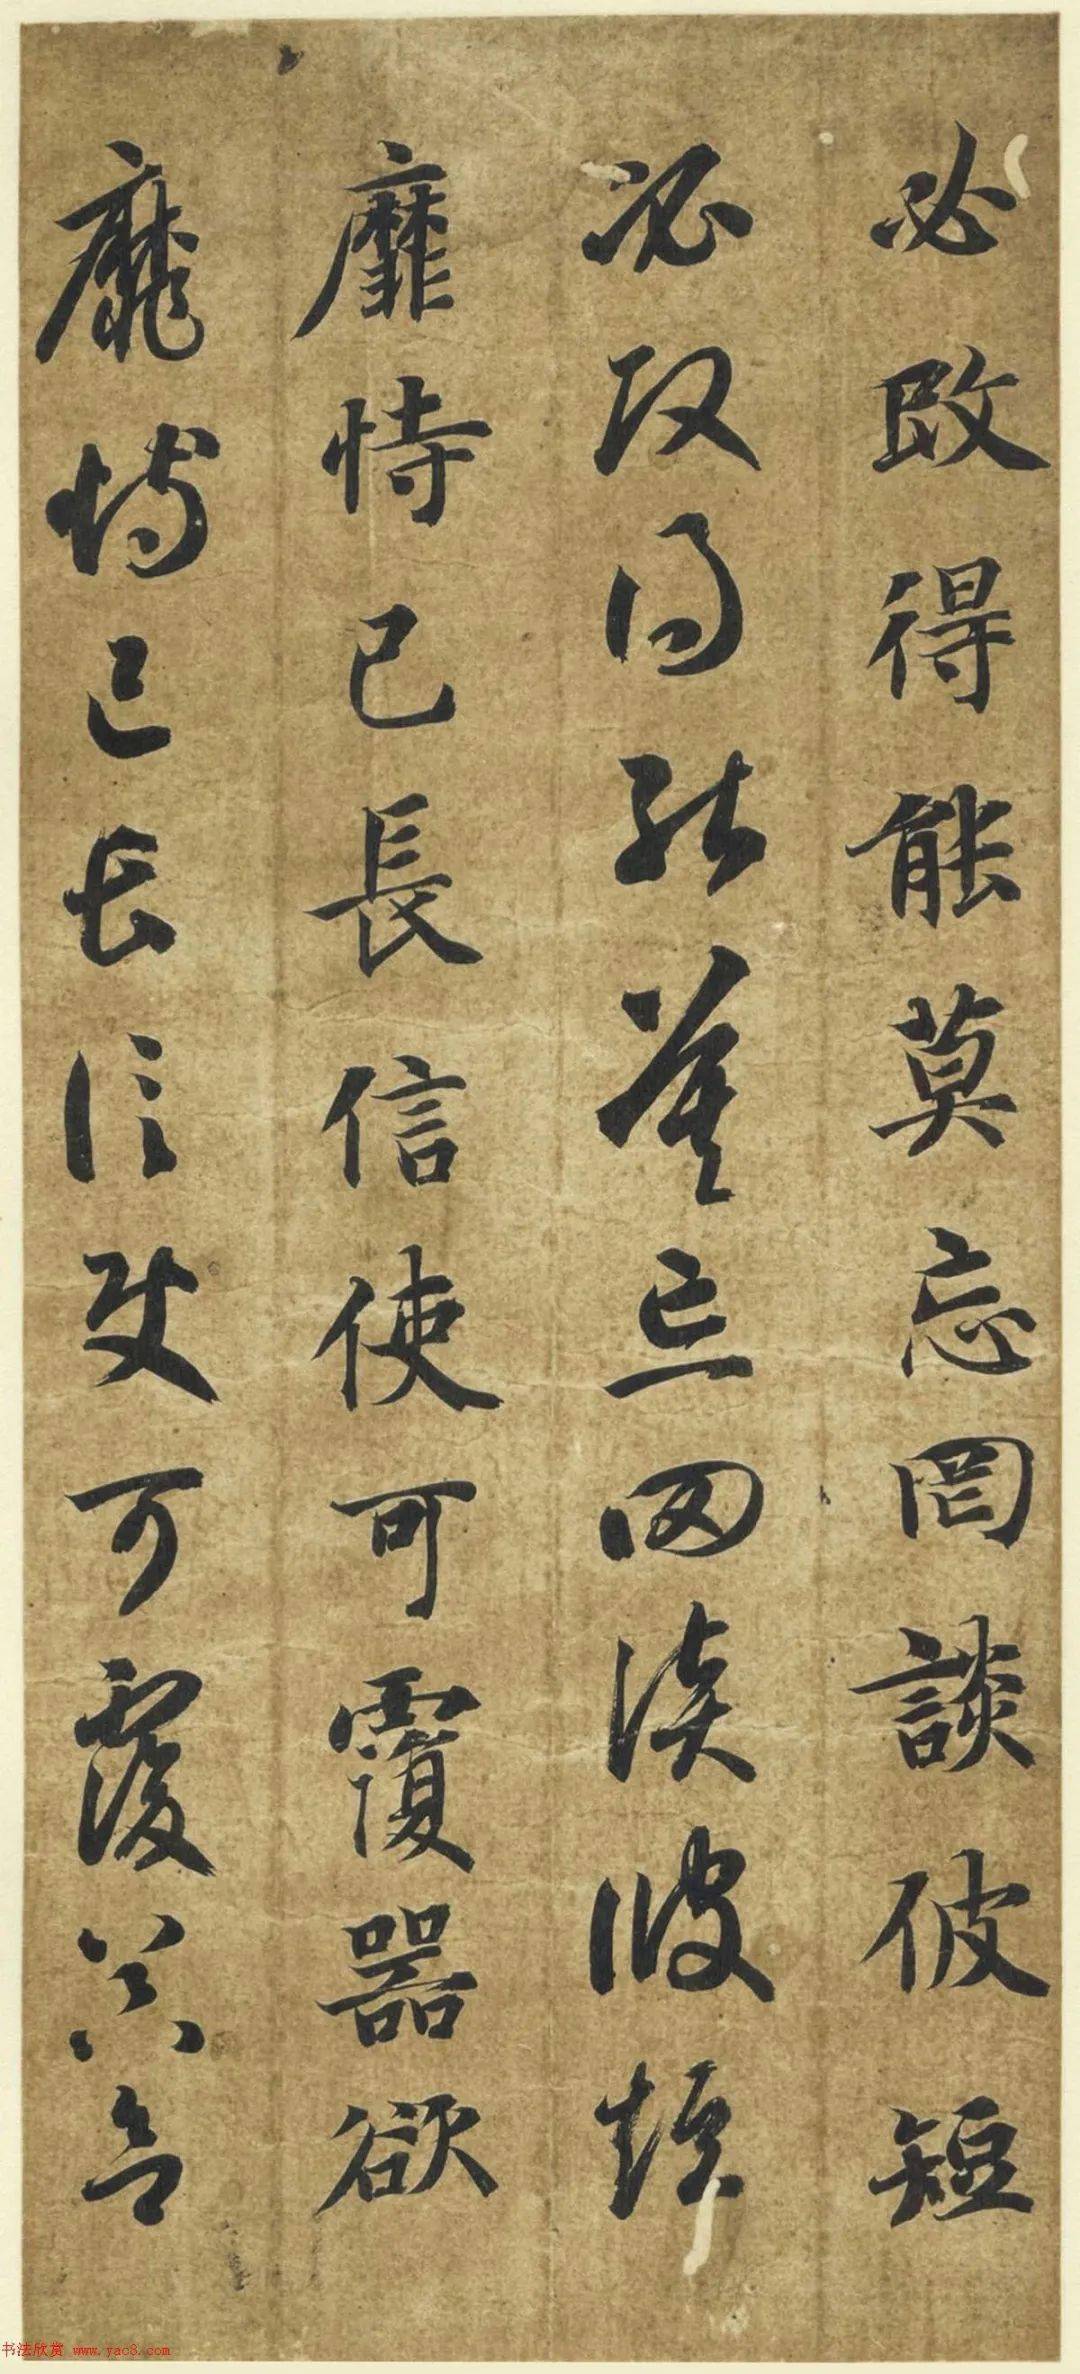 必改得能莫忘罔談彼短
必改得能莫忘罔談彼短
靡恃己長信使可覆器欲
靡恃己長信使可覆器欲
书法欣赏 www.yac8.com